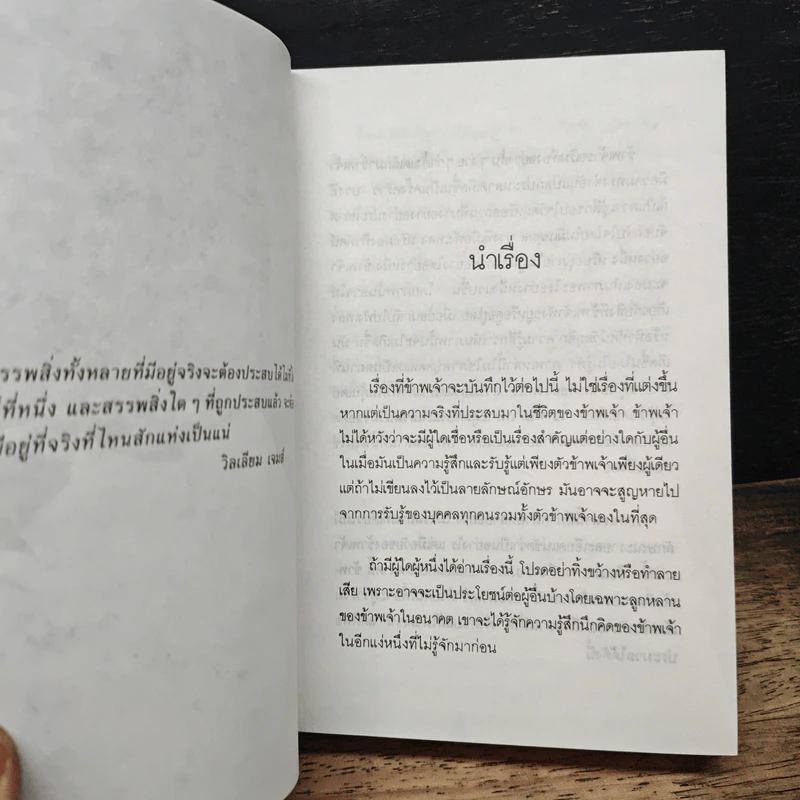 รรพสิ่งทั้งหลายที่มีอยู่จริงจะต้องประสบได้ในที่
ที่หนึ่ง และสรรพสิ่งใด ๆ ที่ถูกประสบแล้ว จะต้อง
มีอยู่ที่จริงที่ไหนสักแห่งเป็นแน่
วิลเลียม เจมส์
นำเรื่อง
เรื่องที่ข้าพเจ้าจะบันทึกไว้ต่อไปนี้ ไม่ใช่เรื่องที่แต่งขึ้น
หากแต่เป็นความจริงที่ประสบมาในชีวิตของข้าพเจ้า ข้าพเจ้า
ไม่ได้หวังว่าจะมีผู้ใดเชื่อหรือเป็นเรื่องสำคัญแต่อย่างใดกับผู้อื่น
ในเมื่อมันเป็นความรู้สึกและรับรู้แต่เพียงตัวข้าพเจ้าเพียงผู้เดียว
แต่ถ้าไม่เขียนลงไว้เป็นลายลักษณ์อักษร มันอาจจะสูญหายไป
จากการรับรู้ของบุคคลทุกคนรวมทั้งตัวข้าพเจ้าเองในที่สุด
ถ้ามีผู้ใดผู้หนึ่งได้อ่านเรื่องนี้ โปรดอย่าทิ้งขว้างหรือทำลาย
เสีย เพราะอาจจะเป็นประโยชน์ต่อผู้อื่นบ้างโดยเฉพาะลูกหลาน
ของข้าพเจ้าในอนาคต เขาจะได้รู้จักความรู้สึกนึกคิดของข้าพเจ้า
ในอีกแง่หนึ่งที่ไม่รู้จักมาก่อน